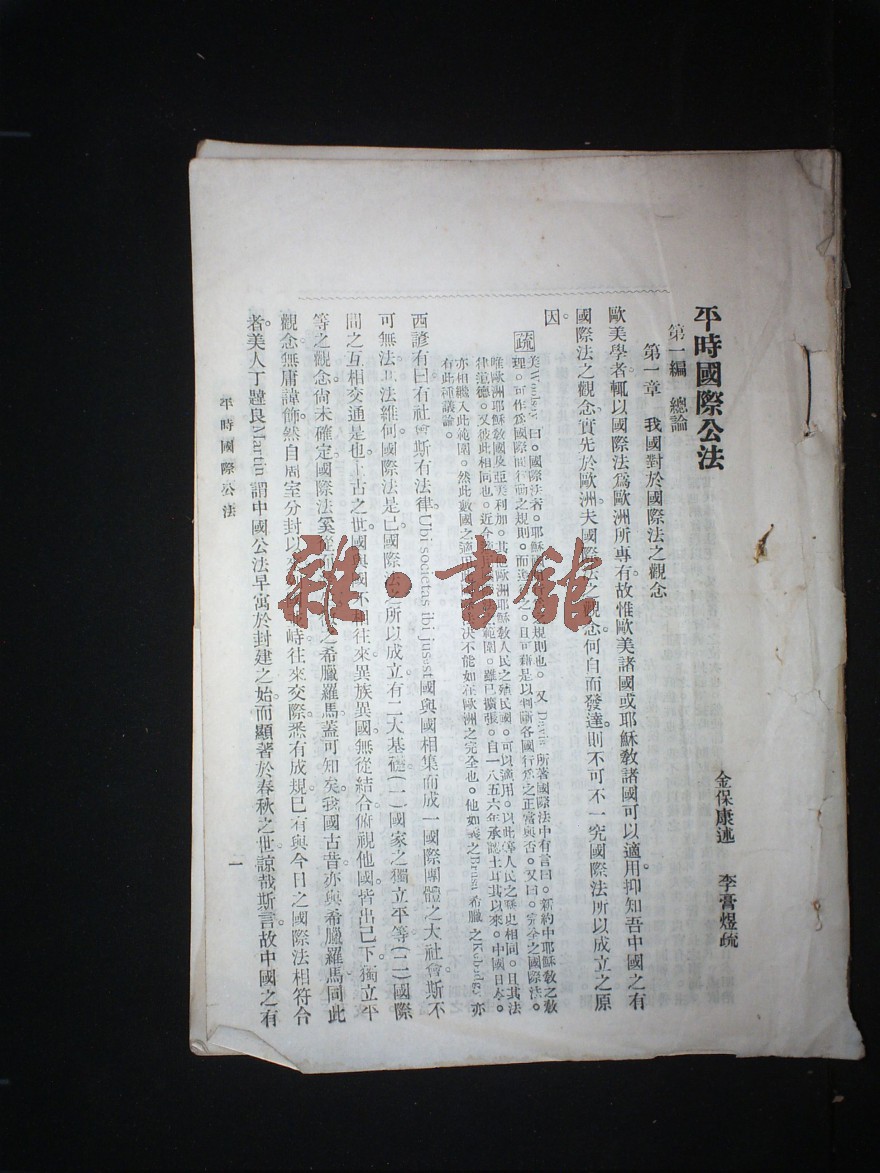 平時國際公法
金保康述 李膏煜疏
第一編 總論
第一章 我國對於國際法之觀念
歐美學者。輒以國際法爲歐洲所專有。故惟歐美諸國或耶穌敎諸國可以適用。抑知吾中國之有
國際法之觀念。實先於歐洲。夫國際法之觀念。何自而發達。則不可不一究國際法所以成立之原
因。
疏 美Woolsey曰。國際法者。耶穌 規則也。又Davis所著國際法中有言曰。新約中耶穌敎之敎
理。可作爲國際間行動之規則。而 之。且可藉是以判斷各國行爲之正當與否。又曰。完全之國際法。
唯歐洲耶穌敎國及亞美利加。其 歐洲耶穌敎人民之殖民國。可以適用。以此等人民之歷史相同。且其法
律道德。又彼此相同也。近 範圍。雖已擴張。自一八五六年承認土耳其以來。中國日本。
亦相繼入此範圍。然此數國之適 決不能如在歐洲之完全也。他如 之 希臘之 亦
有此種議論。
西諺有曰。有社會斯有法律。Ubi societas ibi jus est 國與國相集而成一國際團體之大社會。斯不
可無法。其法維何。國際法是已。國際法之所以成立有二大基礎。(一)國家之獨立平等(二)國際
間之互相交通是也。上古之世。國與國不相往來。異族異國。無從結合。俯視他國。皆出己下。獨立平
等之觀念。尙未確定。國際法奚從而 之希臘羅馬。蓋可知矣。我國古昔。亦與希臘羅馬同此
觀念。無庸諱飾。然自周室分封以 峙。往來交際。悉有成規。已有與今日之國際法相符合
者。美人丁韙良Martin謂中國公法早寓於封建之始。而顯著於春秋之世。諒哉斯言。故中國之有
平時國際公法
一
雜·書館